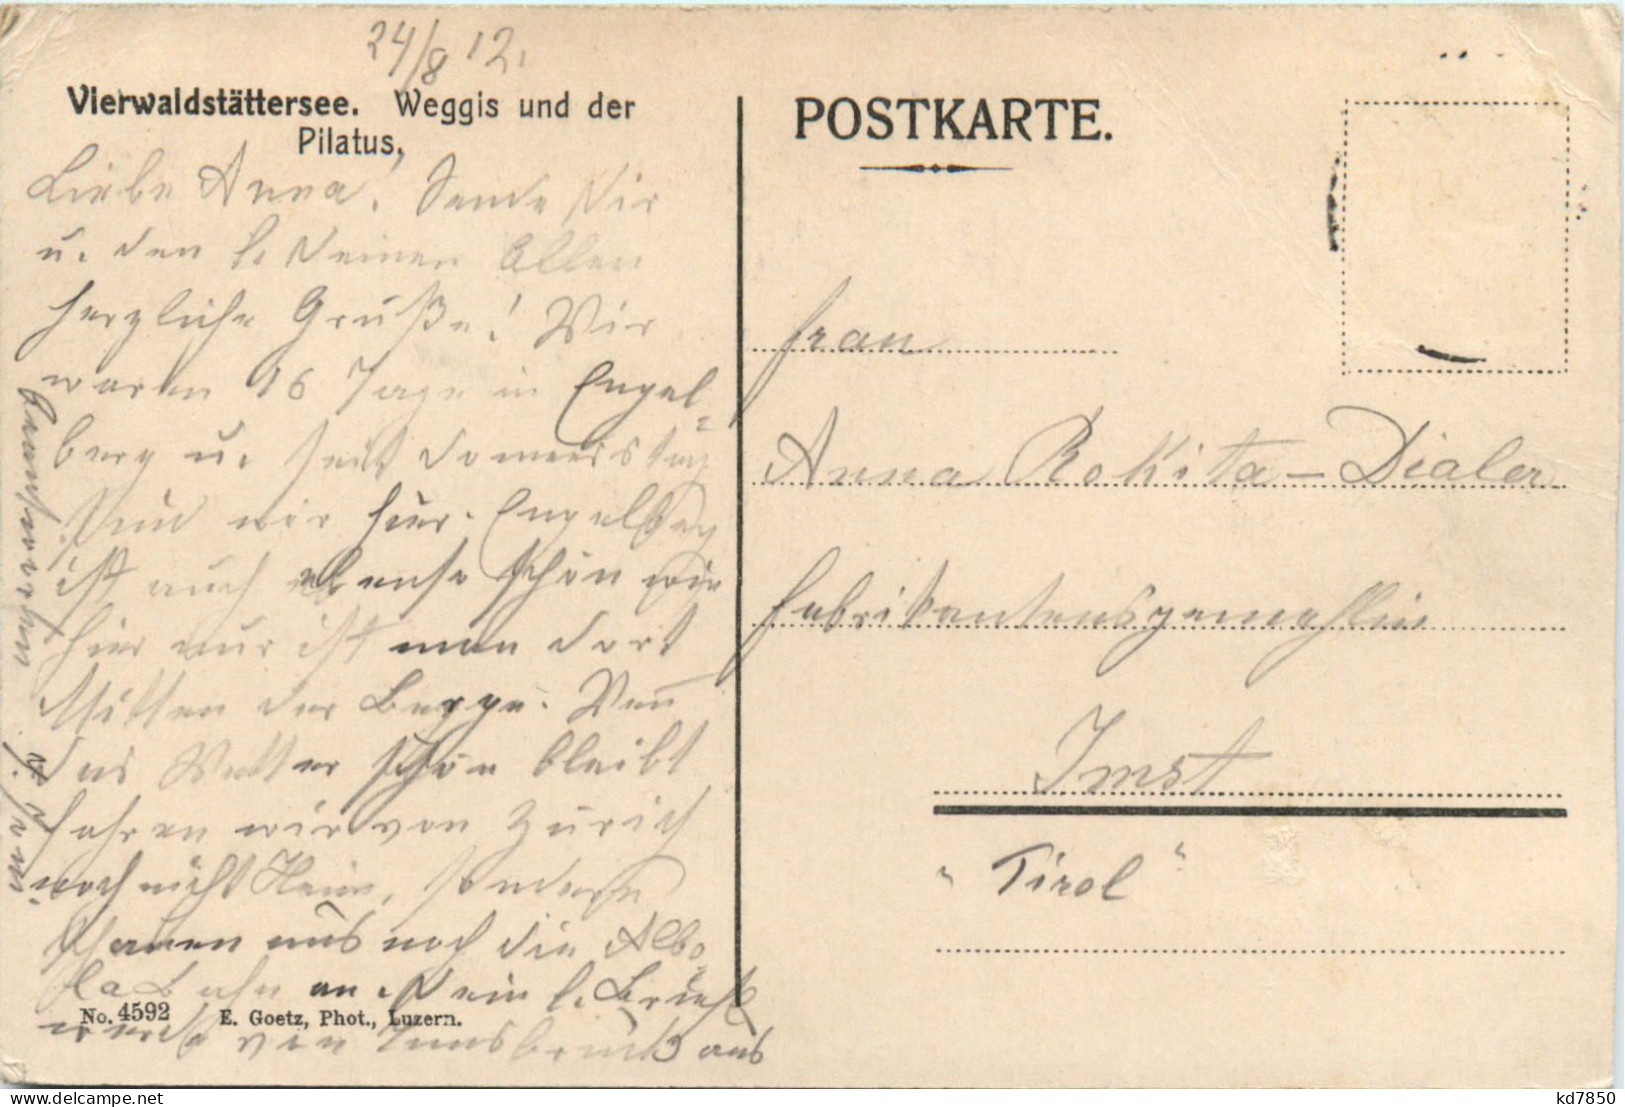 24/8 12.
Vierwaldstättersee. Weggis und der
Pilatus.
Liebe Anna! Sende Dir
u. den l. Deinen Allen
herzliche Grüße! Wir
waren 16 Tage in Engel-
berg u. seit Donnerstag
sind wir hier. Engelberg
ist auch ebenso schön wie
hier nur ist man dort
Mitten der Berge. Wenn
das Wetter schön bleibt
fahren wir von Zürich
noch nicht Heim, sondern
schauen uns noch die Albu
la Bahn an. Dein l. Brief
No. 4592 E. Goetz, Phot., Luzern.
von Innsbruck aus
POSTKARTE.
Frau
Anna Rokita-Dialer
Fabrikantensgemahlin
Imst
"Tirol"
kd7850